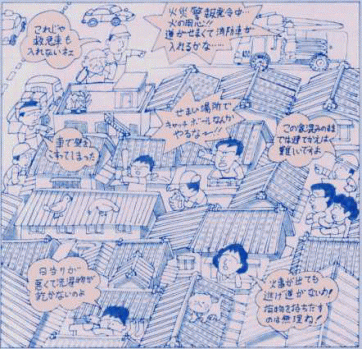 これじゃ
救急車も
入れないネェ
火災警報発令中
火の用心!!
道がせまくて消防車が
入れるかな……
せまい場所で
キャッチボールなんか
やるなー!!
この家並みのままでは
建てがえは
難しいですよ
車で
来てしまった
日当りが
悪くて洗濯物が
乾かないのよ
火事が出ても
逃げ道がないわ!
荷物を持ちだす
のは無理ね!